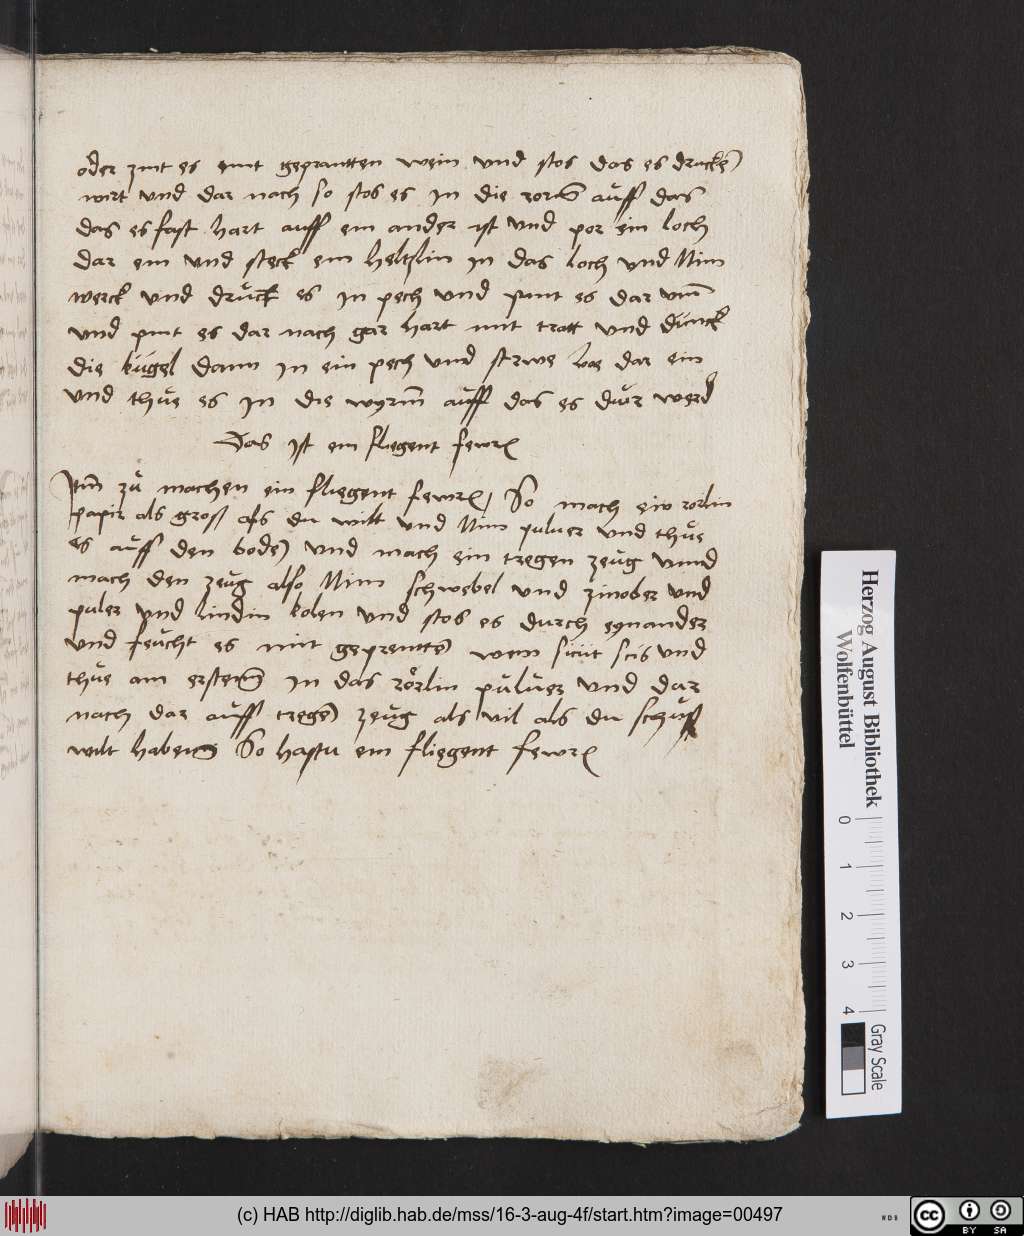 oder zint es mit geprantten wein und stos das es drucke͂
wirt und dar nach so stos es in die rorn̄ auff das
das es fast hart auff ein ander ist und por ein loch
dar ein und steck ein heltzlin in das loch und Nim
werck und drück es in pech und pint es dar um̄
und pint es dar nach gar hart mit trott und dünck
die kugel dann in ein pech und los dar ein
und thüe es in die wyrm̄ auff das es dür werd
Das ist ein fliegent fewr
Itm̄ zü machen ein fliegent fewr, So mach ein rorlin
papir als gros als du wilt und Nim puluer und thüe
es auff den bode͂ und mach ein tregen zeüg unnd
mach den zeüg also Nim schwebel und zinober und
puler und lindin kolen und stos es durch eynander
und feücht es mit geprentte͂ wein sicüt scis und
thüe am ersten̄ in das rörlin pulüer und dar
nach dar auff trege͂ zeüg als vil als du schüs
wilt haben So hastu ein fliegent fewr
Herzog August Bibliothek
Wolfenbüttel
0 1 2 3 4
Gray Scale
(c) HAB http://diglib.hab.de/mss/16-3-aug-4f/start.htm?image=00497
WDB
cc BY SA